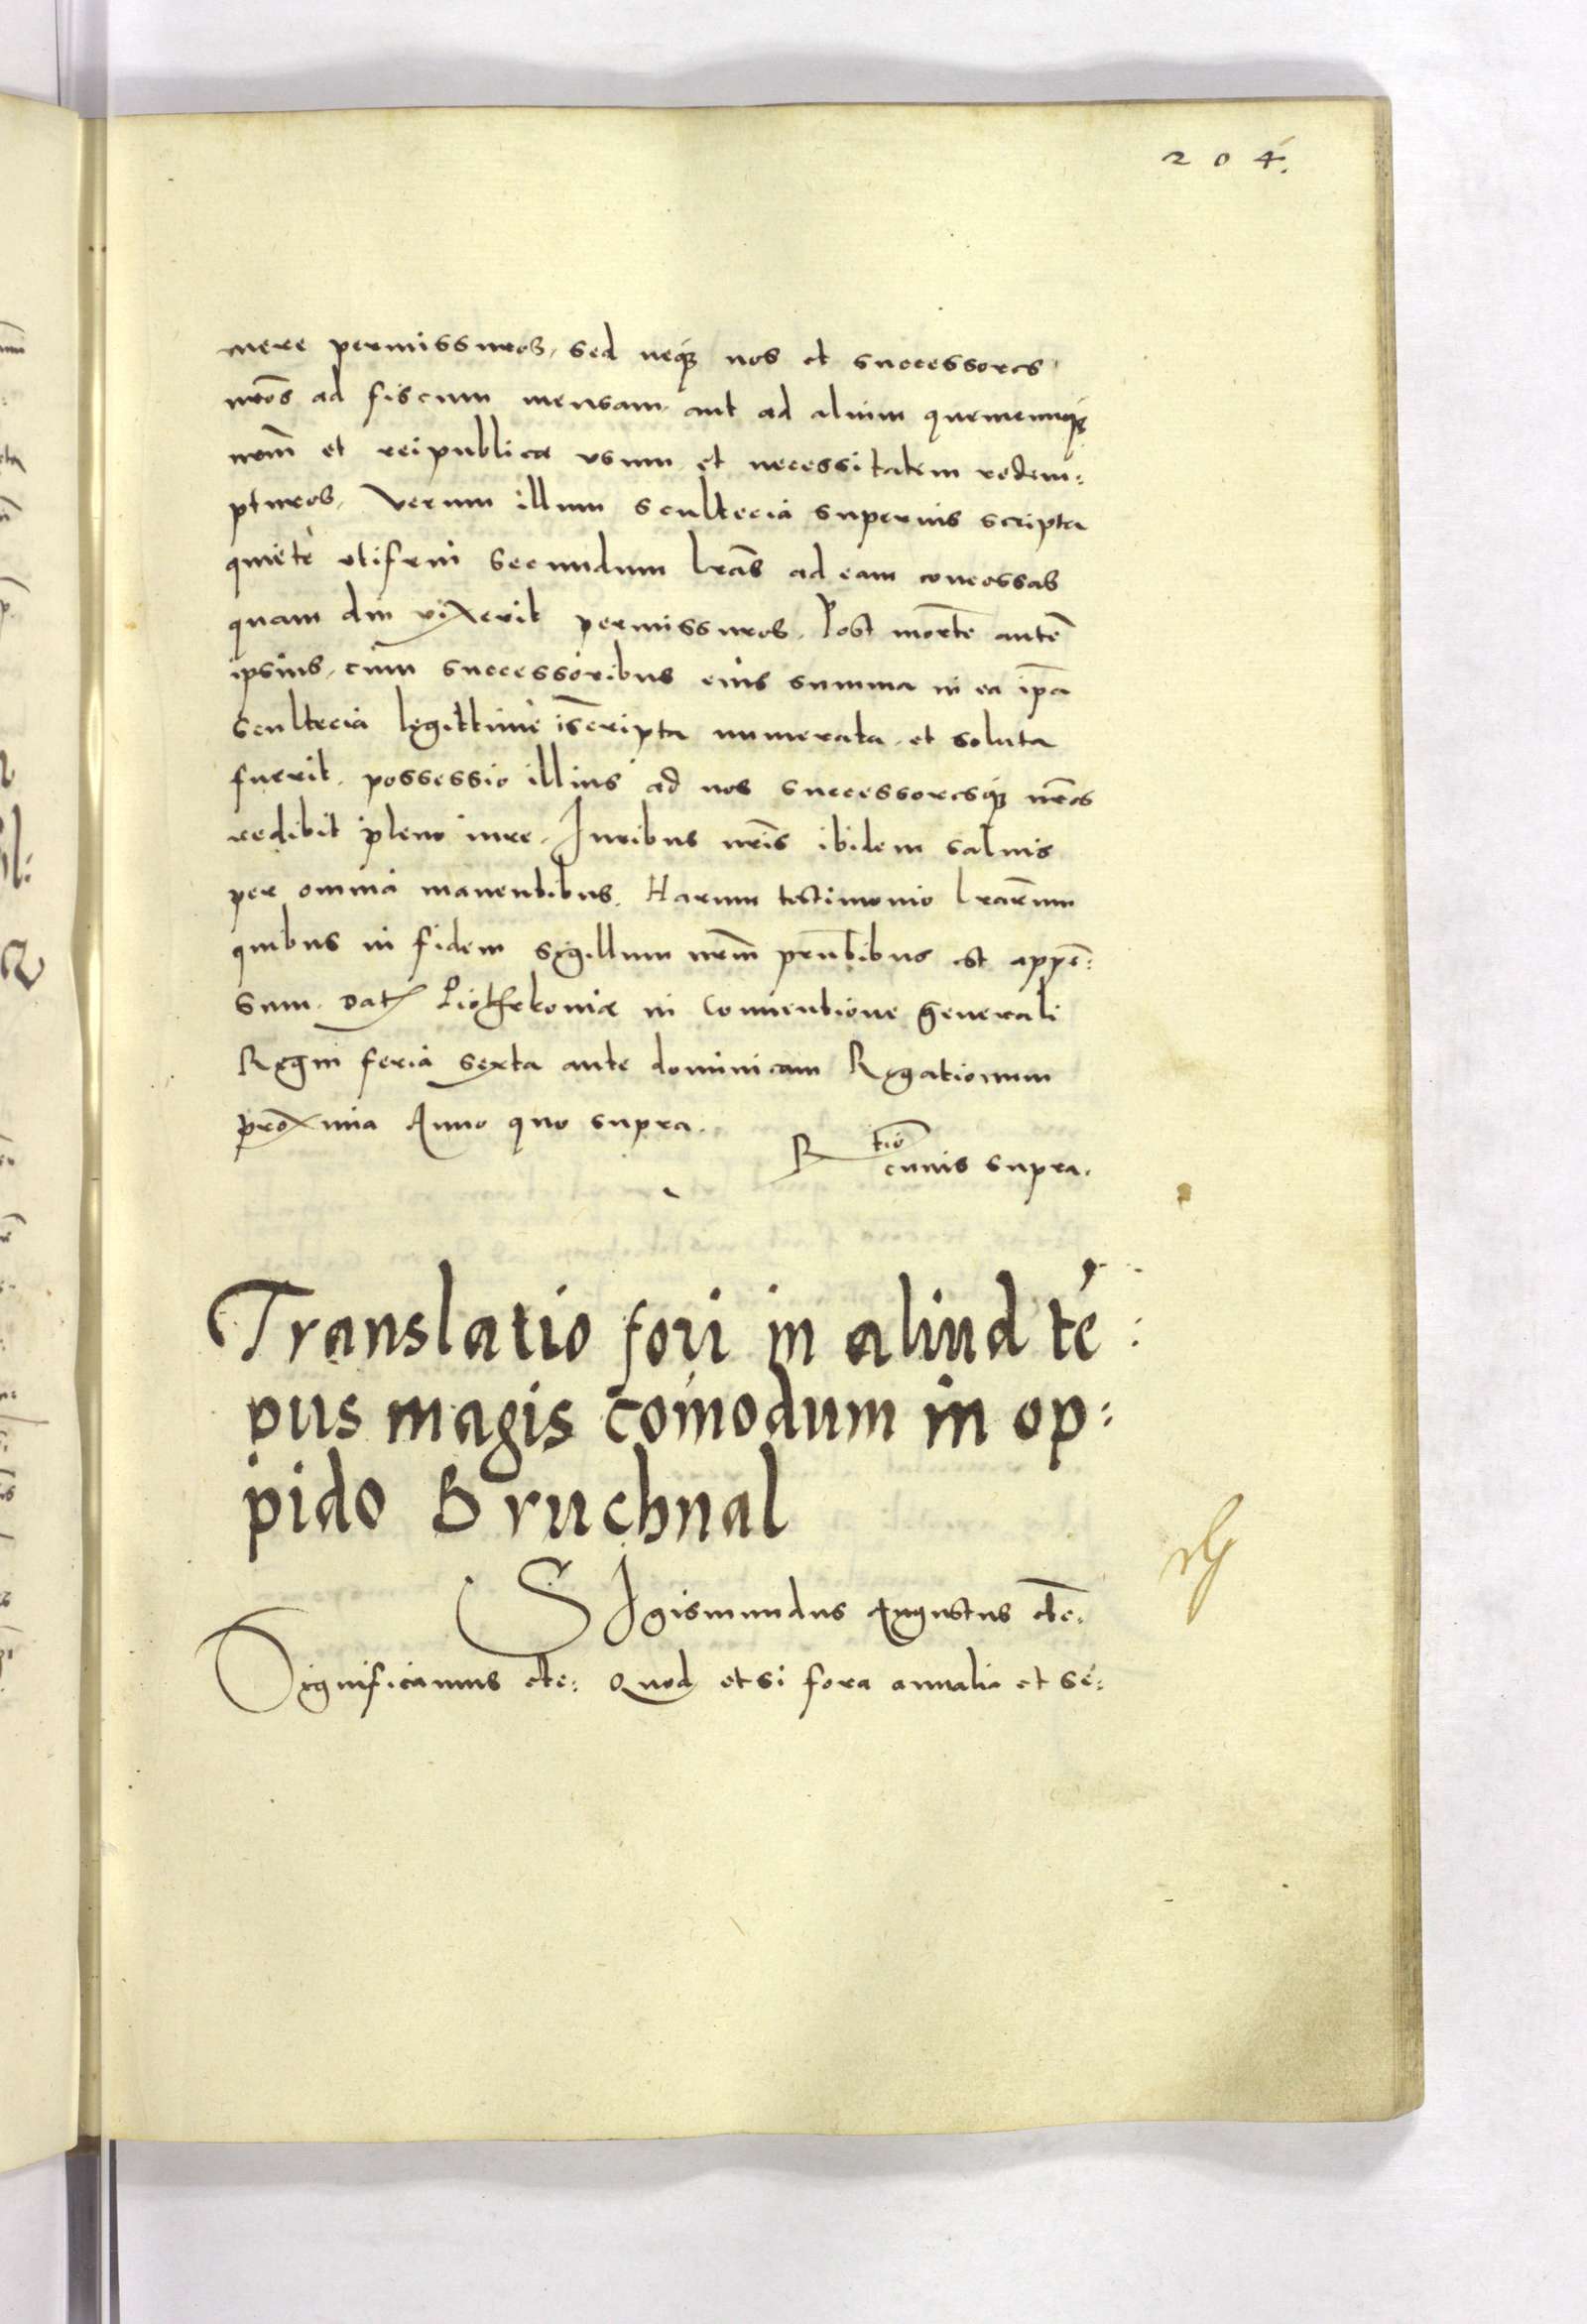 204.
mere permissuros, sed neqȝ nos et successores
nr̄os ad fiscum mensam aut ad alium quemcunqȝ
nr̄m et reipublicæ usum et necessitatem redem:
pturos. Verum illum scultecia superius scripta
quiete utifrui secundum lr̄as ad eam concessas
quam diu vixerit permissuros. Post mortē autē
ipsius, cum successoribus eius summa in ea ip̄a
scultecia legittime īscripta numerata et soluta
fuerit, possessio illius ad nos successoresqȝ nr̄os
redibit pleno iure. Iuribus nr̄is ibidem salvis
per omnia manentibus. Harum testimonio lr̄arum
quibus in fidem sigillum nr̄m pr̄ntibus est appē:
sum. Dat Piotrkoviæ in Conventione generali
Regni feria sexta ante dominicam Rogationum
proxima Anno quo supra.
R tio
cuius supra.
Translatio fori in aliud tē:
pus magis com̄odum in op:
pido Bruchnal
SIgismundus Augustus etc:
Significamus etc: Quod etsi fora annalia et se: